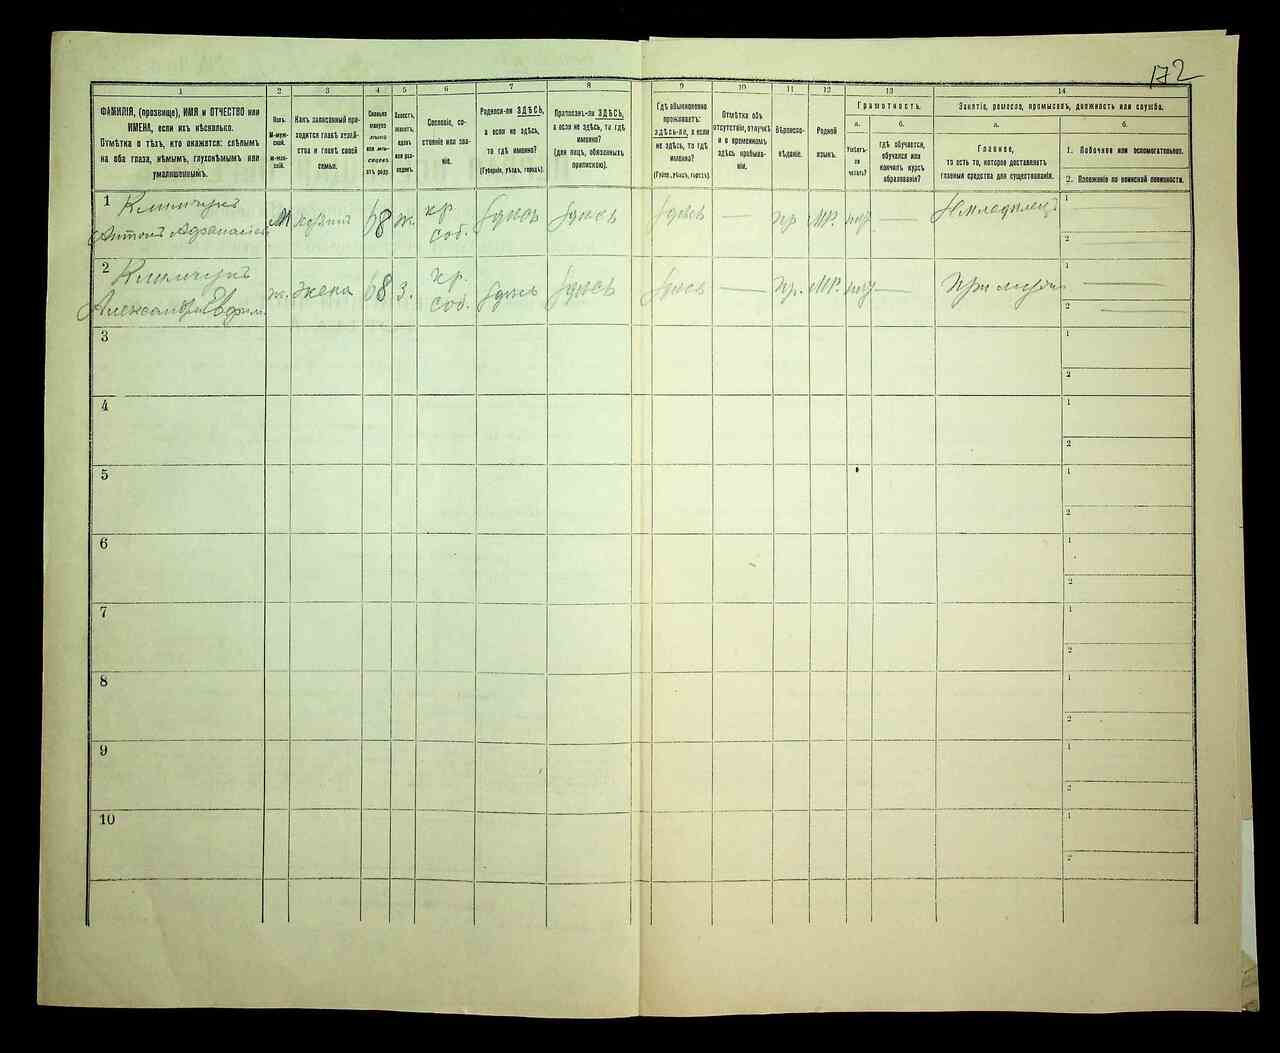 172
1
2
3
4
5
6
7
8
9
10
11
12
13
14
ФАМИЛІЯ, (прозвище), ИМЯ и ОТЧЕСТВО или
ИМЕНА, если ихъ нѣсколько.
Отмѣтка о тѣхъ, кто окажется: слѣпымъ
на оба глаза, нѣмымъ, глухонѣмымъ или
умалишеннымъ.
Полъ.
М-муж-
ской.
Ж-жен-
скій.
Какъ записанный при-
ходится главѣ хозяй-
ства и главѣ своей
семьи.
Сколько
минуло
лѣтъ
или мѣ-
сяцевъ
отъ роду.
Холостъ,
женатъ,
вдовъ
или раз-
веденъ.
Сословіе, со-
стояніе или зва-
ніе.
Родился-ли ЗДѢСЬ,
а если не здѣсь,
то гдѣ именно?
(Губернія, уѣздъ, городъ).
Приписанъ-ли ЗДѢСЬ,
а если не здѣсь, то гдѣ
именно?
(для лицъ, обязанныхъ
припискою).
Гдѣ обыкновенно
проживаетъ:
здѣсь-ли, а если
не здѣсь, то гдѣ
именно?
(Губер., уѣздъ, городъ).
Отмѣтка объ
отсутствіи, отлучкѣ
и о временномъ
здѣсь пребыва-
ніи.
Вѣроиспо-
вѣданіе.
Родной
языкъ.
Грамотность.
а.
Умѣетъ-
ли
читать?
б.
гдѣ обучается,
обучался или
кончилъ курсъ
образованія?
Занятіе, ремесло, промыселъ, должность или служба.
а.
Главное,
то есть то, которое доставляетъ
главныя средства для существованія.
б.
1. Побочное или вспомогательное.
2. Положеніе по воинской повинности.
1
Климчукъ
Антонъ Афанасіев
М
68
ж.
кр
соб.
здѣсь
здѣсь
здѣсь
—
пр
мр.
—
Земледѣлецъ
1
2
2
Климчукъ
Александра Ефим.
ж.
жена
68
з.
кр.
соб.
здѣсь
здѣсь
здѣсь
—
пр.
мр.
—
При мужѣ
1
2
3
1
2
4
1
2
5
1
2
6
1
2
7
1
2
8
1
2
9
1
2
10
1
2